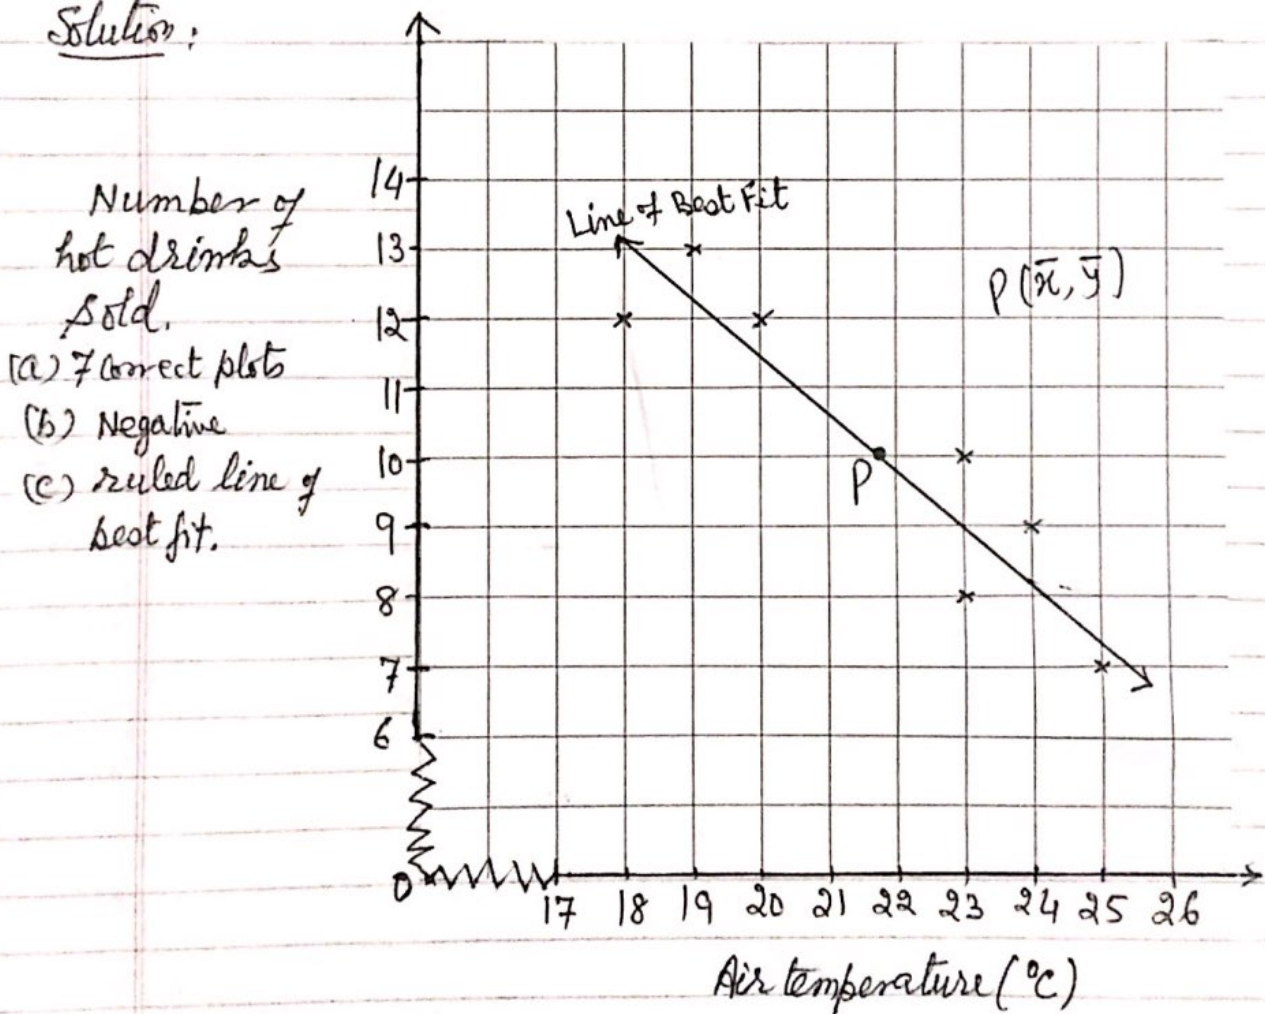 Solution:
Number of
hot drinks
sold.
(a) 7 correct plots
(b) Negative
(c) ruled line of
best fit.
14
13
12
11
10
9
8
7
6
0
Line of Best Fit
P(x̄, ȳ)
P
17 18 19 20 21 22 23 24 25 26
Air temperature (°C)